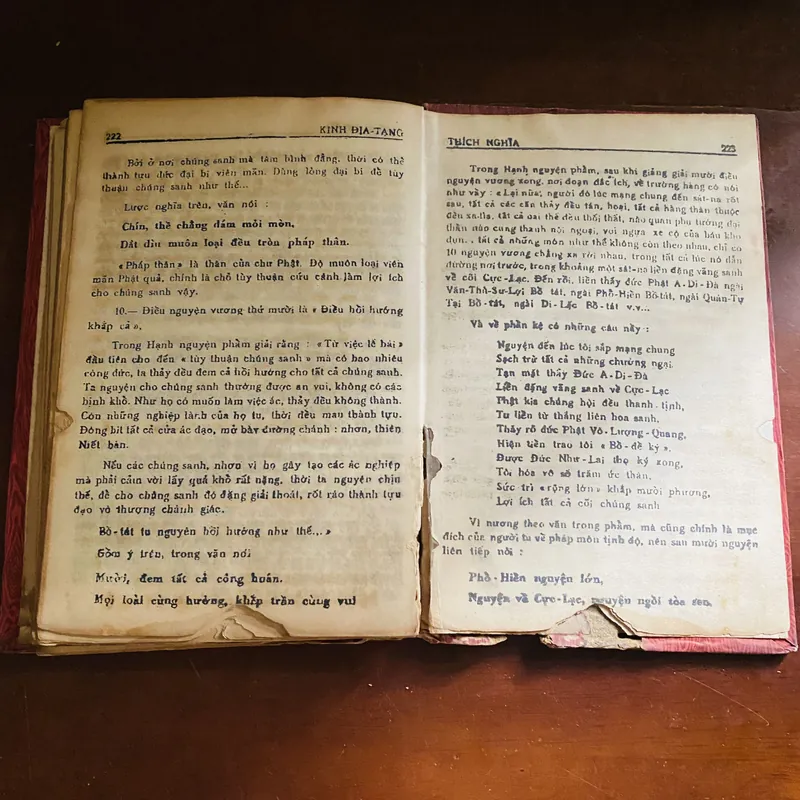 222 KINH ĐỊA-TẠNG
Bởi ở nơi chúng sanh mà tâm bình đẳng, thời có thể
thành tựu đức đại bi viên mãn. Dùng lòng đại bi để tùy
thuận chúng sanh như thế...
Lược nghĩa trên, văn nói :
Chín, thề chẳng dám mỏi mòn,
Dắt dìu muôn loại đều tròn pháp thân.
« Pháp thân » là thân của chư Phật. Độ muôn loại viên
mãn Phật quả, chính là chỗ tùy thuận cứu cánh làm lợi ích
cho chúng sanh vậy.
10.— Điều nguyện vương thứ mười là « Điều hồi hướng
khắp cả ».
Trong Hạnh nguyện phẩm giải rằng : « Từ việc lễ bái
đầu tiên cho đến « tùy thuận chúng sanh » mà có bao nhiêu
công đức, ta thảy đều đem cả hồi hướng cho tất cả chúng sanh.
Ta nguyện cho chúng sanh thường được an vui, không có các
bịnh khổ. Như họ có muốn làm việc ác, thảy đều không thành.
Còn những nghiệp lành của họ tu, thời đều mau thành tựu.
Đóng bít tất cả cửa ác đạo, mở bày đường chánh : nhơn, thiên
Niết bàn.
Nếu các chúng sanh, nhơn vì họ gây tạo các ác nghiệp
mà phải cảm vời lấy quả khổ rất nặng, thời ta nguyện chịu
thế, để cho chúng sanh đó đặng giải thoát, rốt ráo thành tựu
đạo vô thượng chánh giác.
Bồ-tát tu nguyện hồi hướng như thế...»
Gồm ý trên, trong văn nói
Mười, đem tất cả công huân.
Mọi loài cùng hưởng, khắp trần cùng vui
THÍCH NGHĨA 223
Trong Hạnh nguyện phẩm, sau khi giảng giải mười điều
nguyện vương xong, nơi đoạn đắc ích, về trường hàng có nói
như vầy : « Lại nữa, người đó lúc mạng chung đến sát-na rốt
sau, tất cả các căn thảy đều tán, hoại, tất cả hàng thân thuộc
đều xa lìa, tất cả oai thế đều thối thất, nào quan phụ tướng đại
thần nào cung thành nội ngoại, voi ngựa xe cộ của báu kho
đụn.. tất cả những món như thế không còn theo nhau, chỉ có
10 nguyện vương chẳng xa rời nhau, trong tất cả lúc nó dẫn
đường nơi trước, trong khoảng một sát-na liền đặng vãng sanh
về cõi Cực-Lạc. Đến rồi, liền thấy đức Phật A-Di-Đà ngài
Văn-Thù-Sư-Lợi Bồ tát, ngài Phổ-Hiền Bồ-tát, ngài Quán-Tự
Tại Bồ-tát, ngài Di-Lặc Bồ-tát v.v...
Và về phần kệ có những câu nầy :
Nguyện đến lúc tôi sắp mạng chung
Sạch trừ tất cả những chướng ngại.
Tận mặt thấy Đức A-Di-Đà
Liền đặng vãng sanh về Cực-Lạc
Phật kia chúng hội đều thanh tịnh,
Tu liền từ thắng liên hoa sanh,
Thấy rõ đức Phật Vô-Lượng-Quang,
Hiện tiền trao tôi « Bồ-đề ký »,
Được Đức Như-Lai thọ ký xong,
Tôi hóa vô số trăm ức thân,
Sức trí « rộng lớn » khắp mười phương,
Lợi ích tất cả cõi chúng sanh
Vì nương theo văn trong phẩm, mà cũng chính là mục
đích của người tu về pháp môn tịnh độ, nên sau mười nguyện
liên tiếp nói :
Phổ-Hiền nguyện lớn,
Nguyện về Cực-Lạc, nguyện ngồi tòa sen.